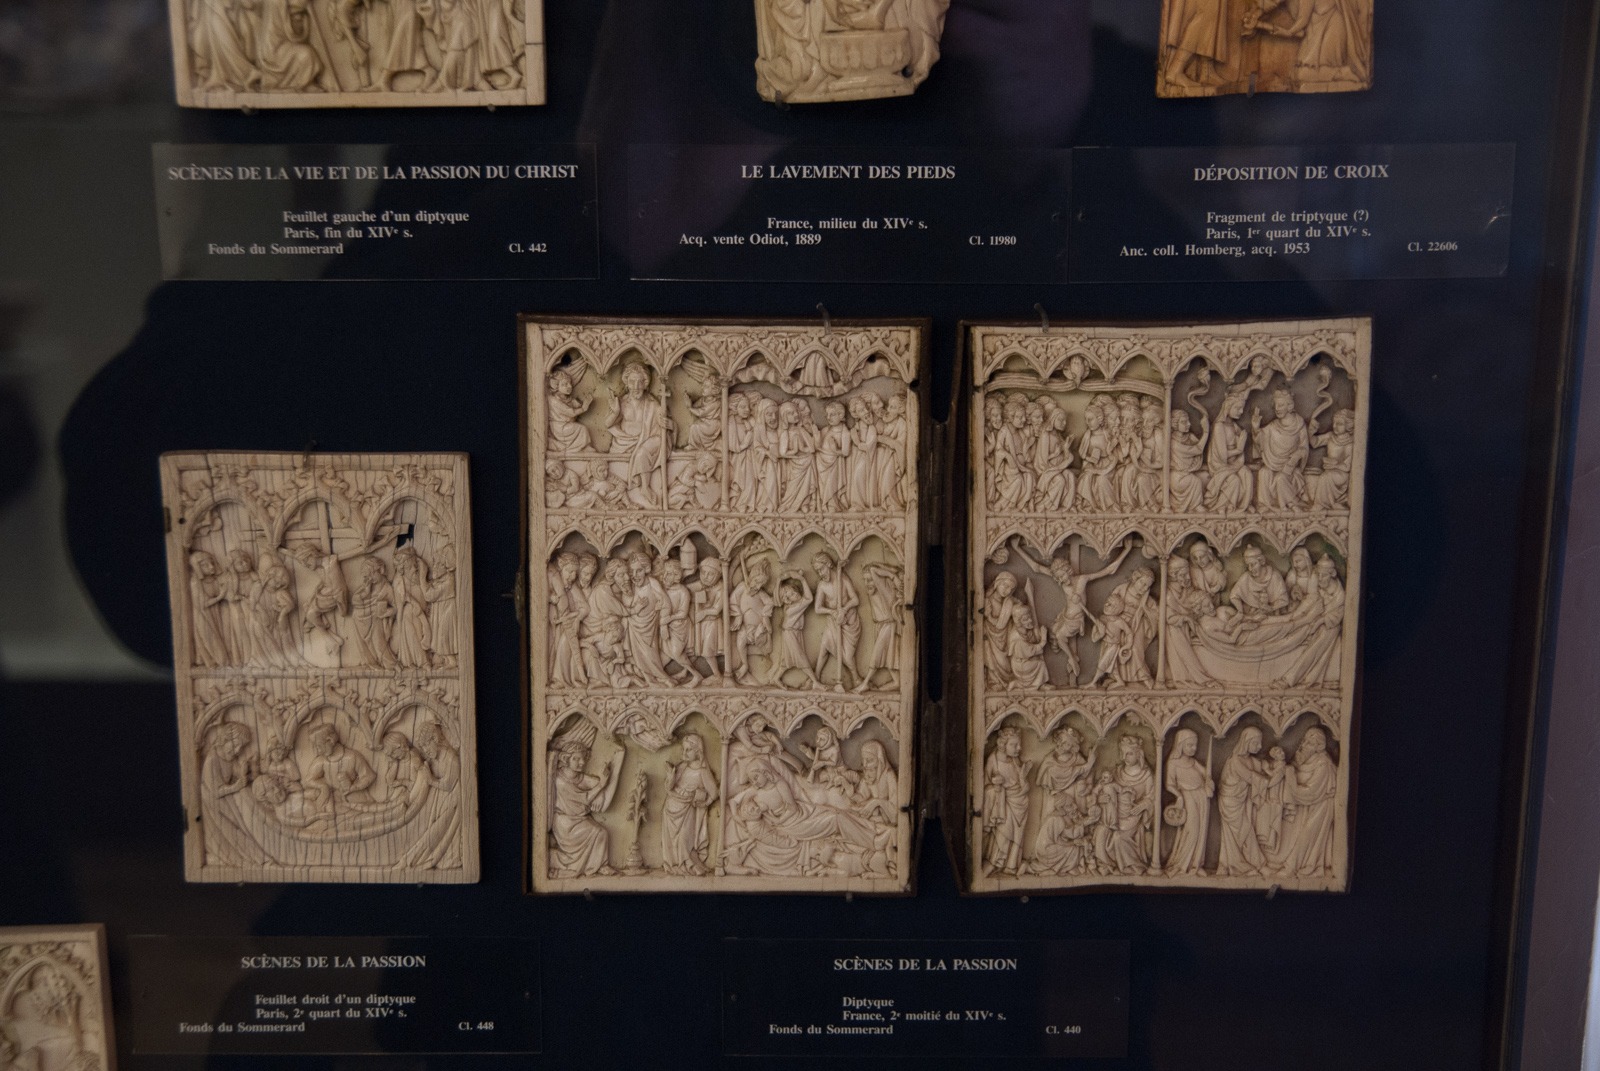 SCÈNES DE LA VIE ET DE LA PASSION DU CHRIST
Feuillet gauche d'un diptyque
Paris, fin du XIVᵉ s.
Fonds du Sommerard Cl. 442
LE LAVEMENT DES PIEDS
France, milieu du XIVᵉ s.
Acq. vente Odiot, 1889 Cl. 11980
DÉPOSITION DE CROIX
Fragment de triptyque (?)
Paris, 1ᵉʳ quart du XIVᵉ s.
Anc. coll. Homberg, acq. 1953 Cl. 22606
SCÈNES DE LA PASSION
Feuillet droit d'un diptyque
Paris, 2ᵉ quart du XIVᵉ s.
Fonds du Sommerard Cl. 448
SCÈNES DE LA PASSION
Diptyque
France, 2ᵉ moitié du XIVᵉ s.
Fonds du Sommerard Cl. 440